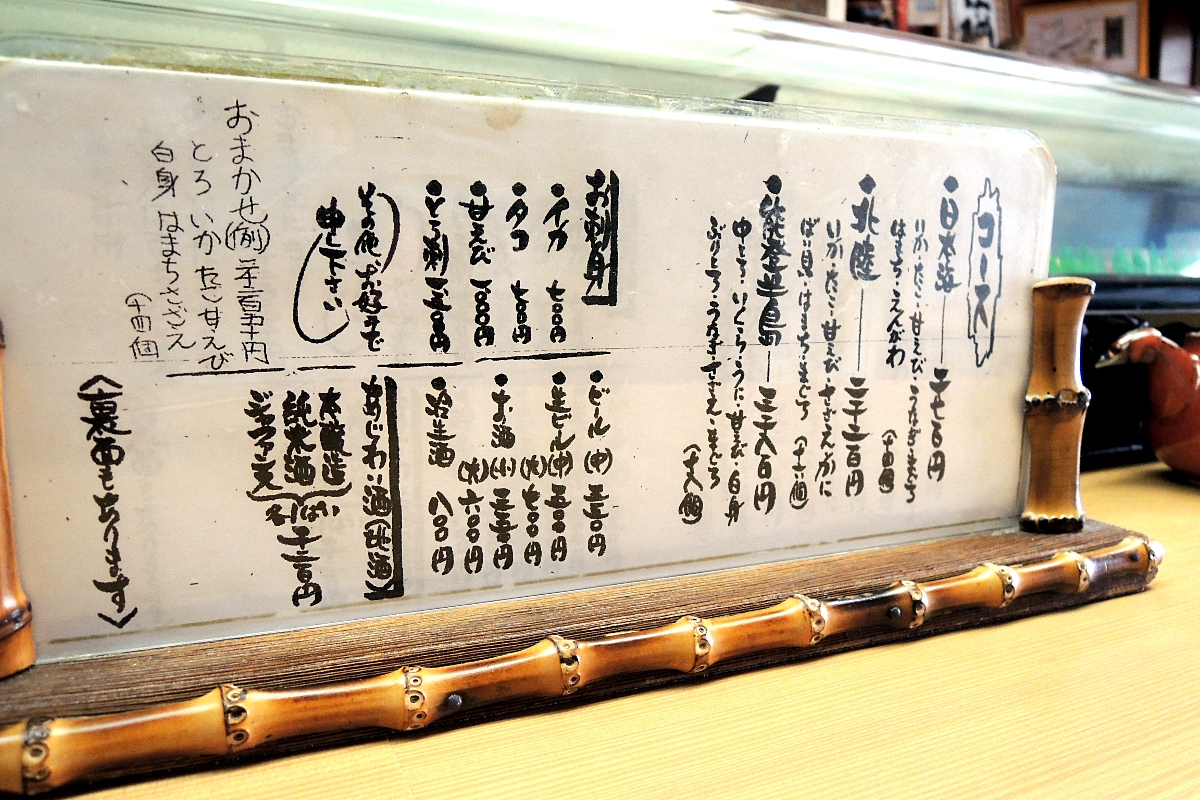 コース
・日本海 ― 二千七百円
いか・たこ・甘えび・うなぎ・まぐろ
はまち・えんがわ (十四個)
・北陸 ― 二千二百円
いか・たこ・甘えび・さざえ・かに
ばい貝・はまち・まぐろ (十六個)
・能登半島 ― 三千八百円
中とろ・いくら・うに・甘えび・白身
ぶりとろ・うなぎ・さざえ・まぐろ
(十八個)
お刺身
・イカ 七〇〇円
・タコ 七〇〇円
・甘えび 一〇〇〇円
・とろ刺
その他お好みで
申し下さい
おまかせ(例)
とろ いか たこ 甘えび
白身 はまち さざえ
(十四個)
・ビール(中) 五五〇円
・生ビール(中) 五〇〇円
(大) 七〇〇円
・お酒(小) 三五〇円
(大) 六〇〇円
・冷生酒 八〇〇円
あじわい酒(地酒)
本醸造
純米酒
各1ぱい 千二百円
〈裏面もあります〉